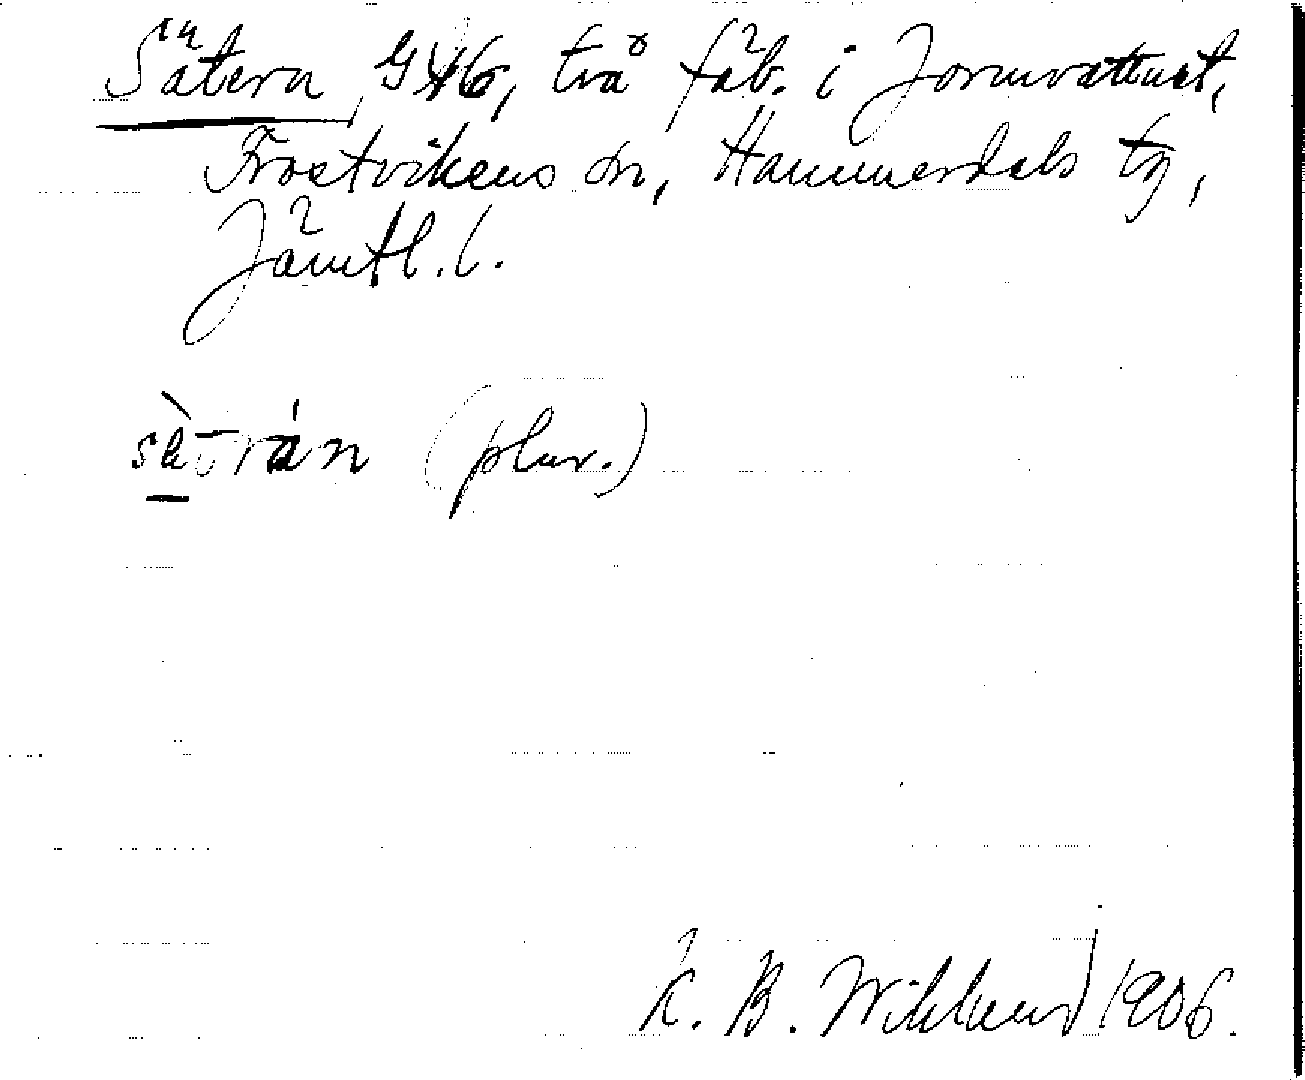 Sätern G46, två fäb. i Jormvattnet,
Frostvikens sn, Hammerdals tg,
Jämtl. l.
sètrán (plur.)
K. B. Wiklund 1906.